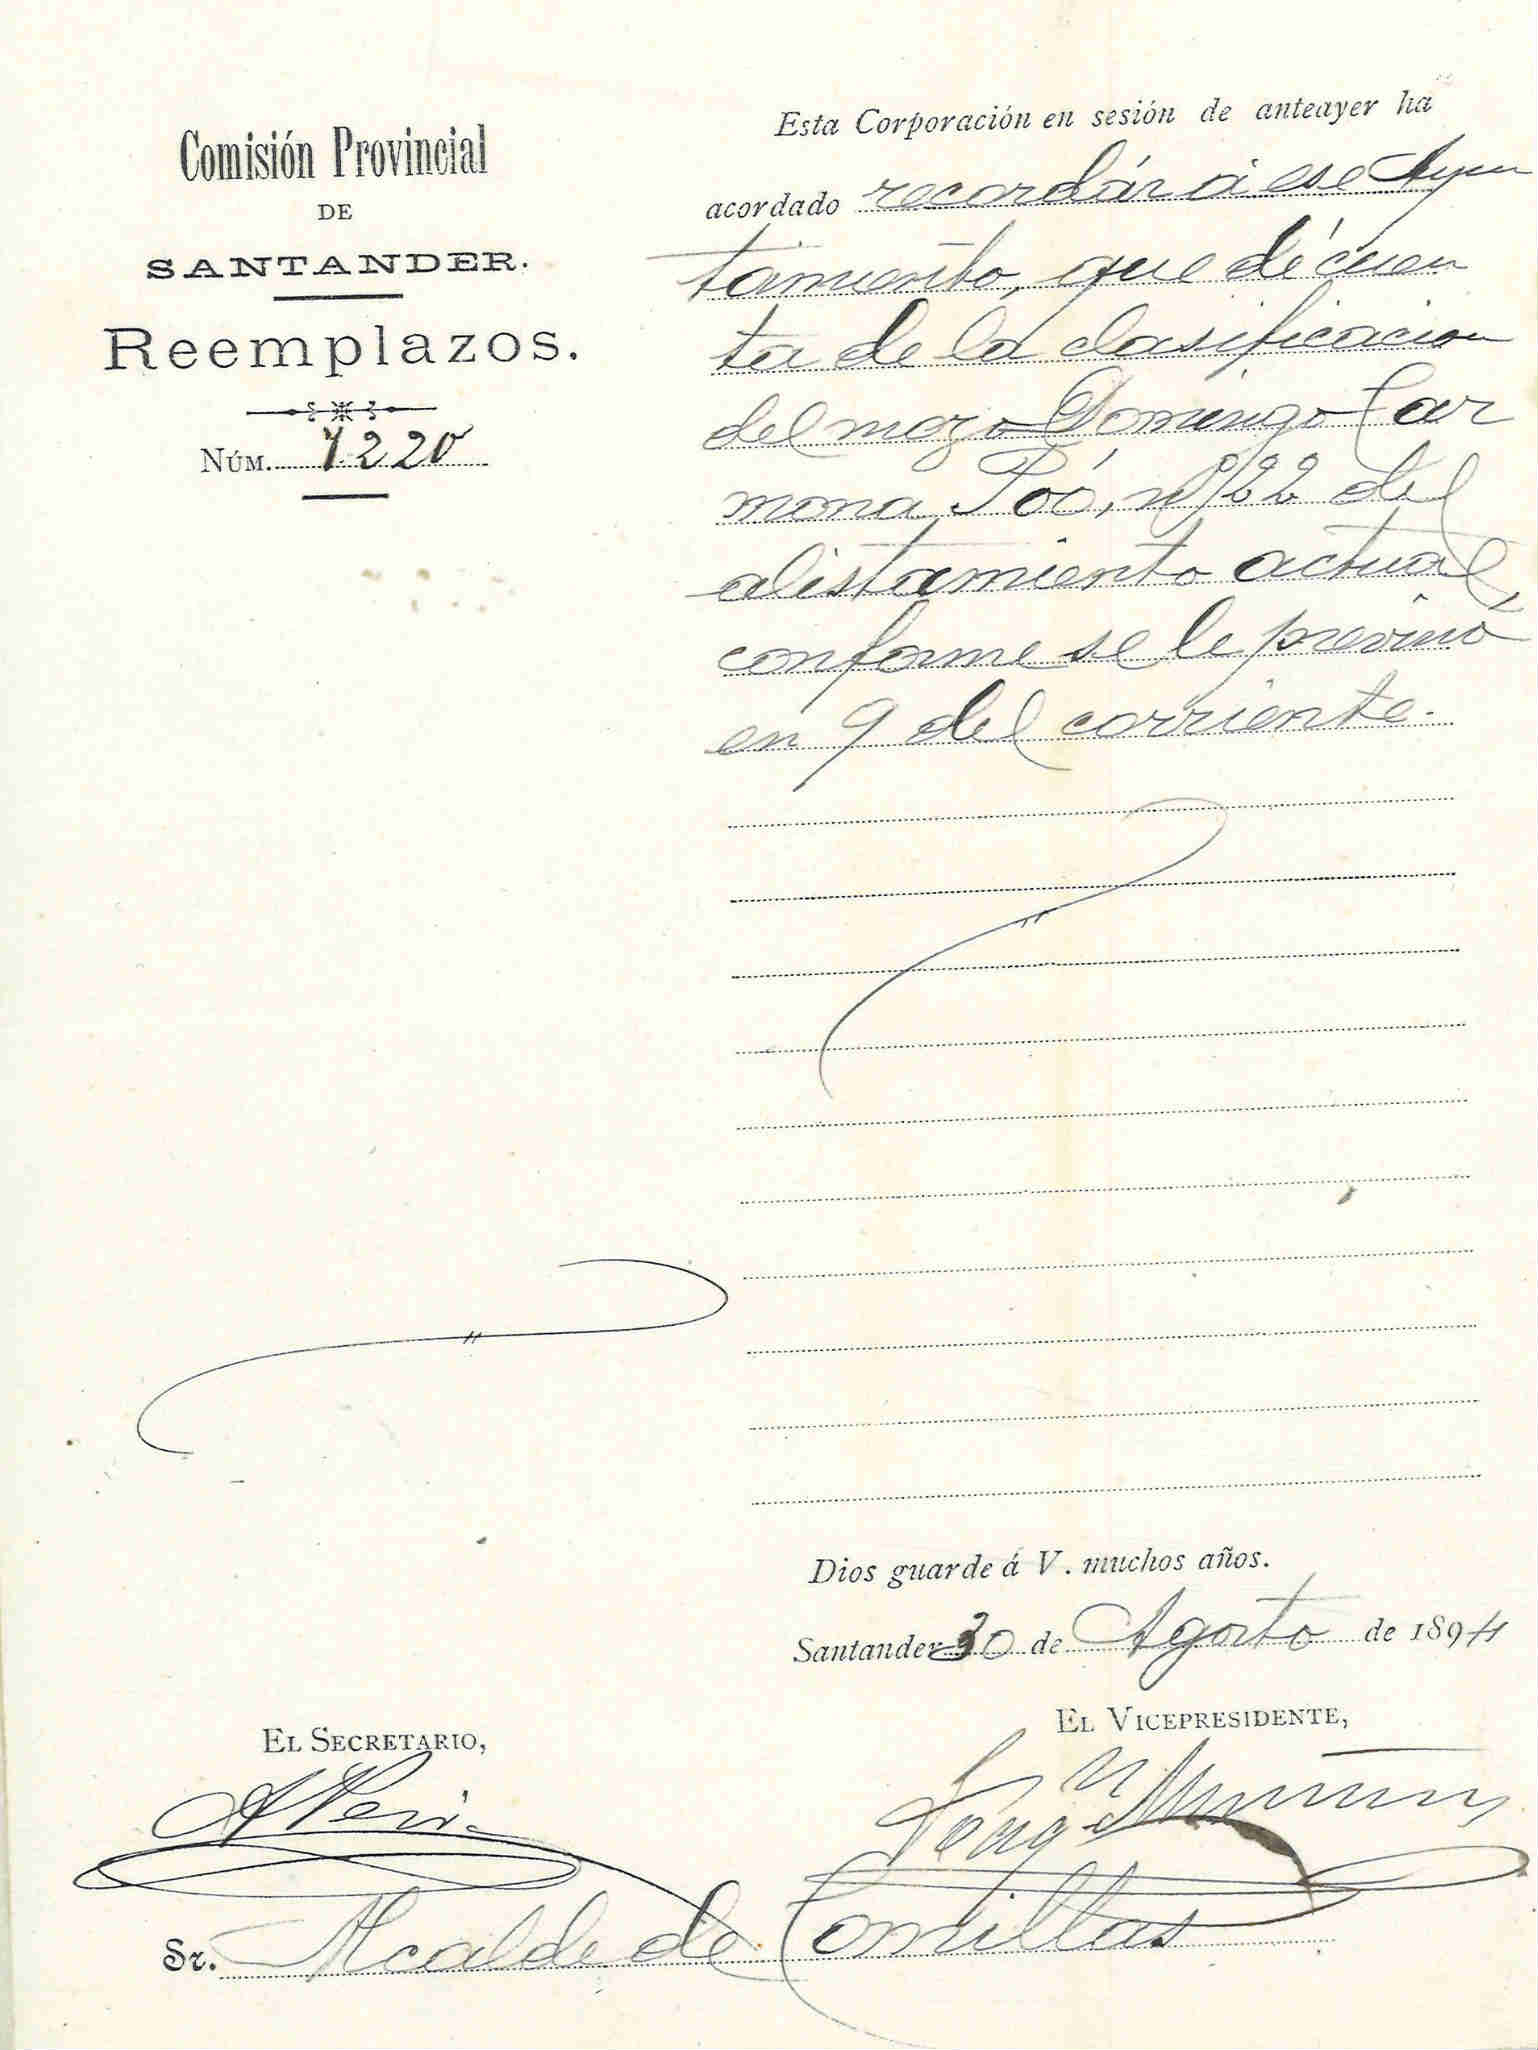 Comisión Provincial
DE
SANTANDER.
Reemplazos.
NÚM. 1220
Esta Corporación en sesión de anteayer ha
acordado recordár á ese Ayun
tamiento, que dé cuen
ta de la clasificacion
del mozo Domingo Car
mona Poó, nº 22 del
alistamiento actual,
conforme se le previno
en 9 del corriente.
Dios guarde á V. muchos años.
Santander 30 de Agosto de 1894
EL SECRETARIO,
EL VICEPRESIDENTE,
Sr. Alcalde de Comillas